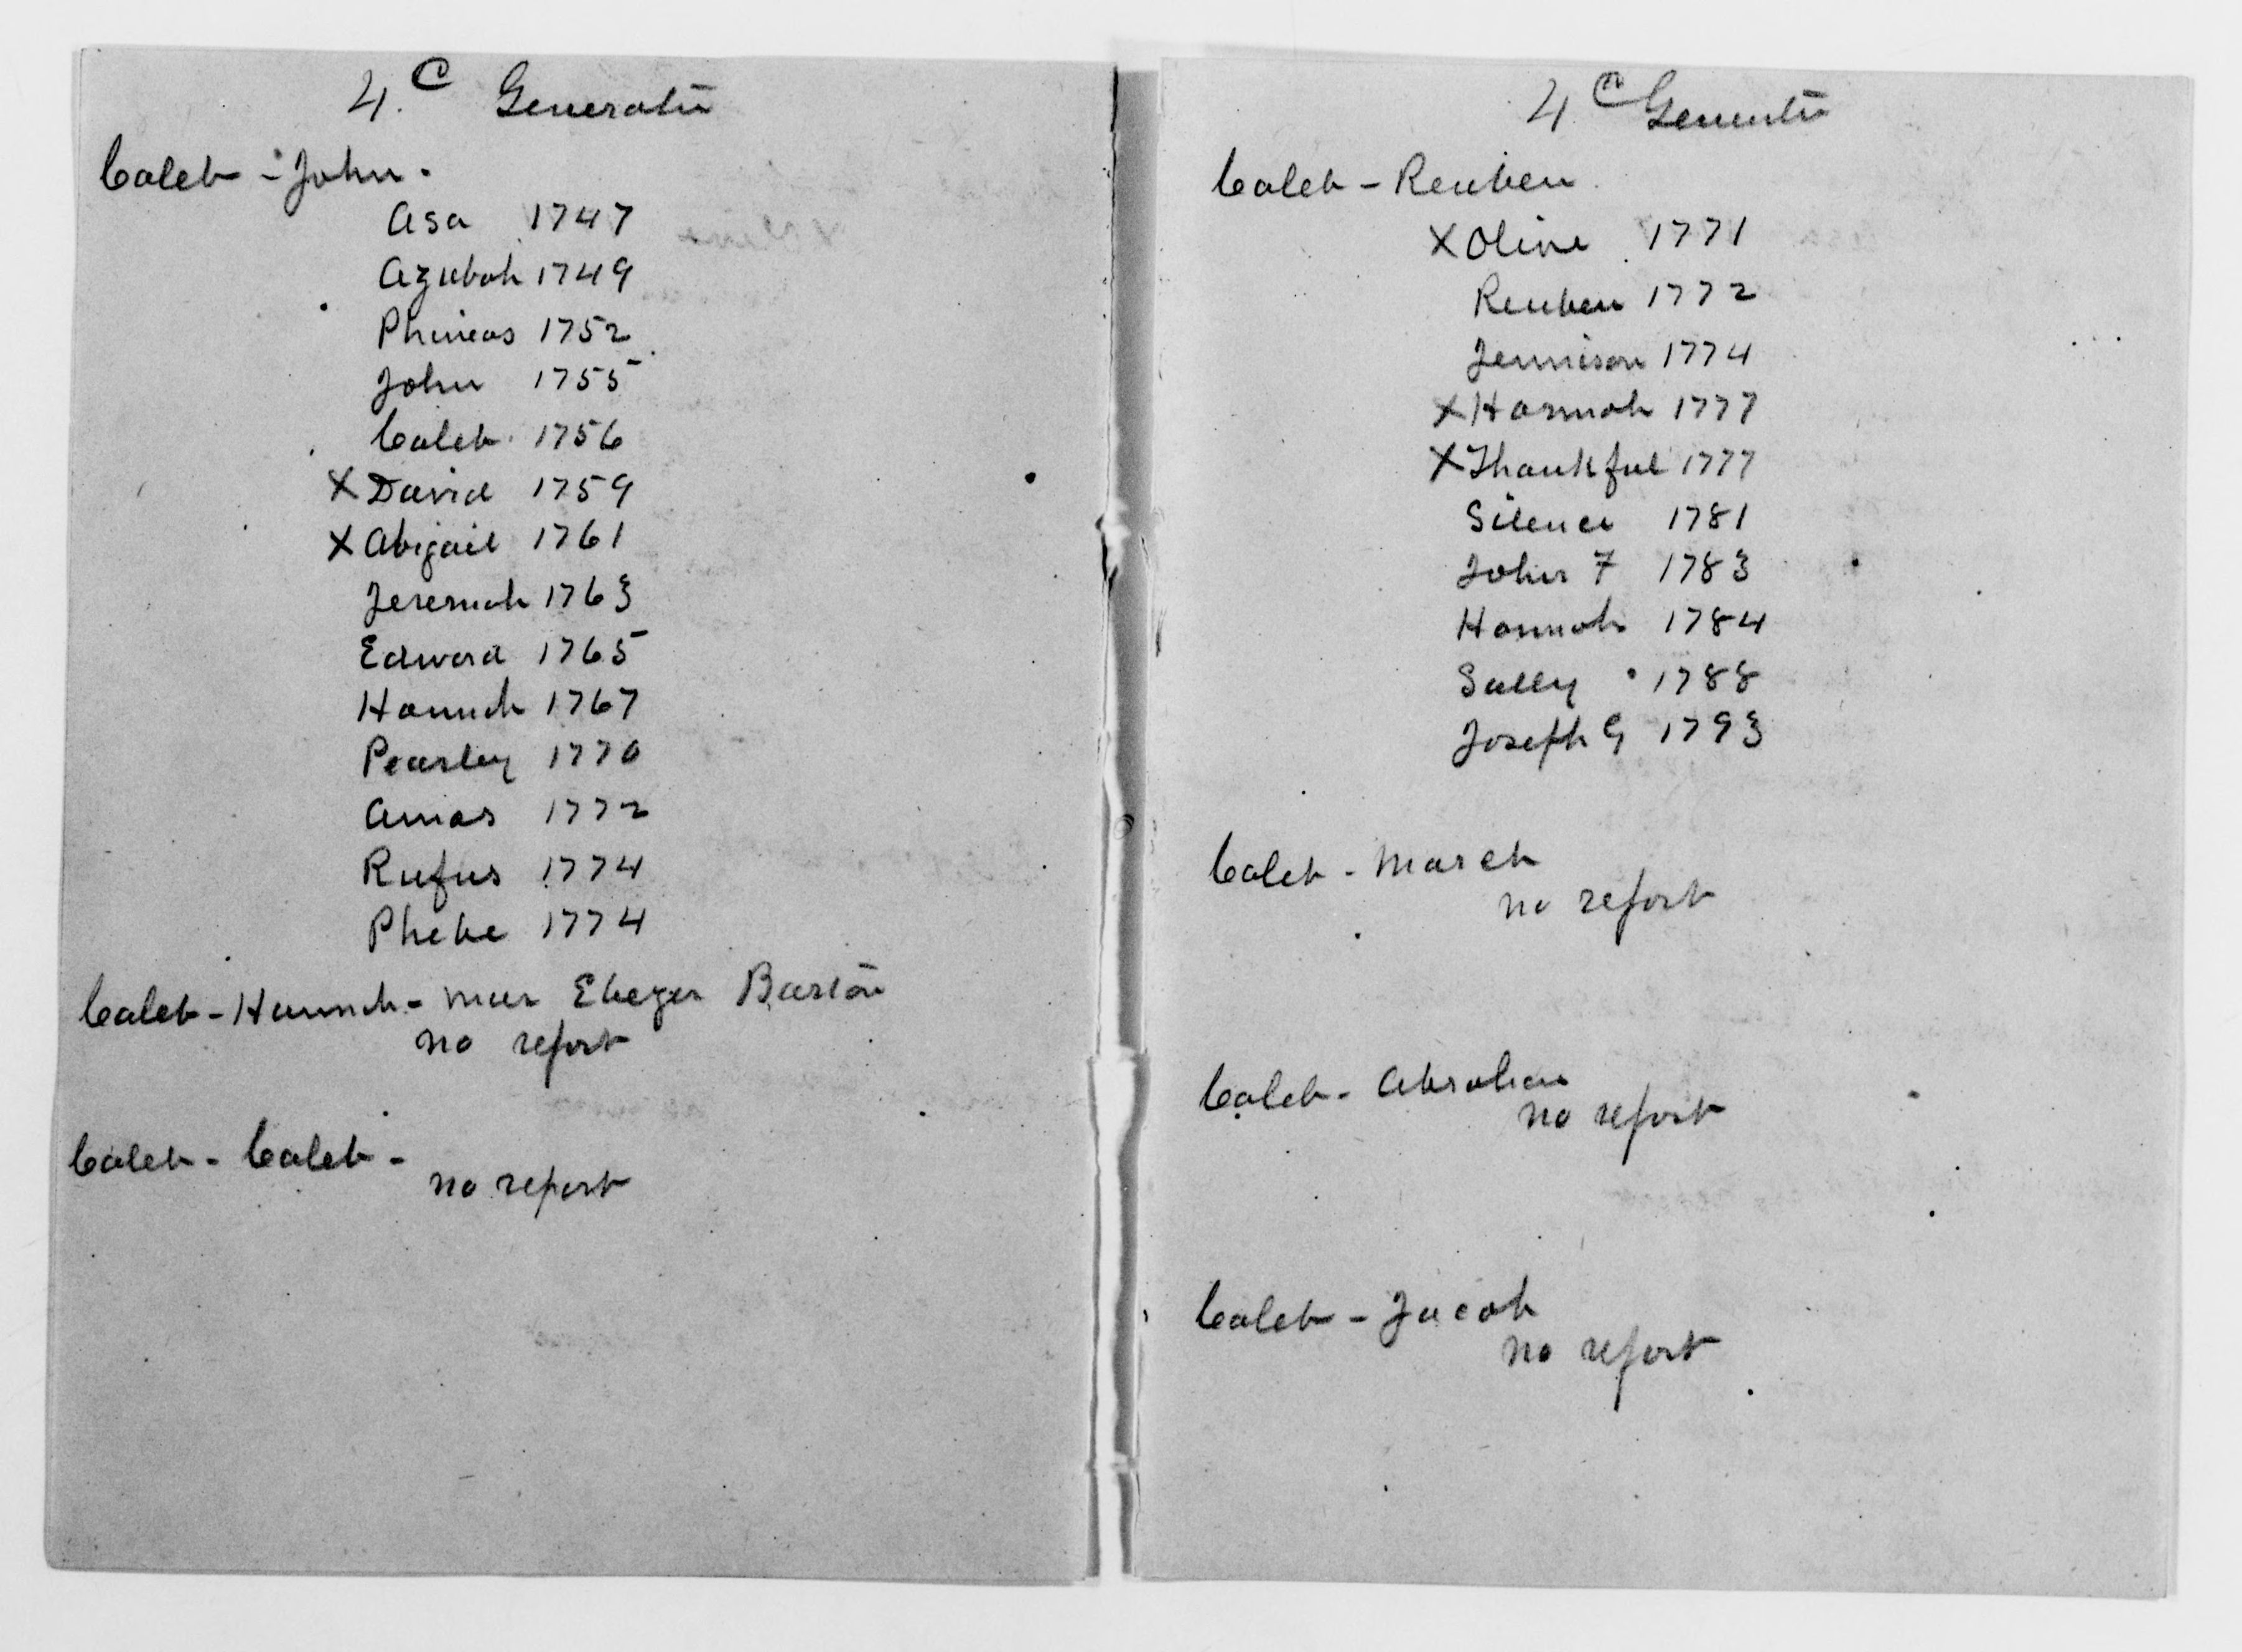 4.C Generatn
Caleb - John.
Asa 1747
Azubah 1749
Phineas 1752
John 1755
Caleb 1756
X David 1759
X Abigail 1761
Jeremiah 1763
Edward 1765
Hannah 1767
Pearley 1770
Amos 1772
Rufus 1774
Phebe 1774
Caleb - Hannah - mar Ebezer Barton
no report
Caleb - Caleb -
no report
4 C Generatn
Caleb - Reuben
X Olive 1771
Reuben 1772
Jennison 1774
X Hannah 1777
X Thankful 1777
Silence 1781
John F 1783
Hannah 1784
Sally 1788
Joseph G 1793
Caleb - March
no report
Caleb - Abraham
no report
Caleb - Jacob
no report